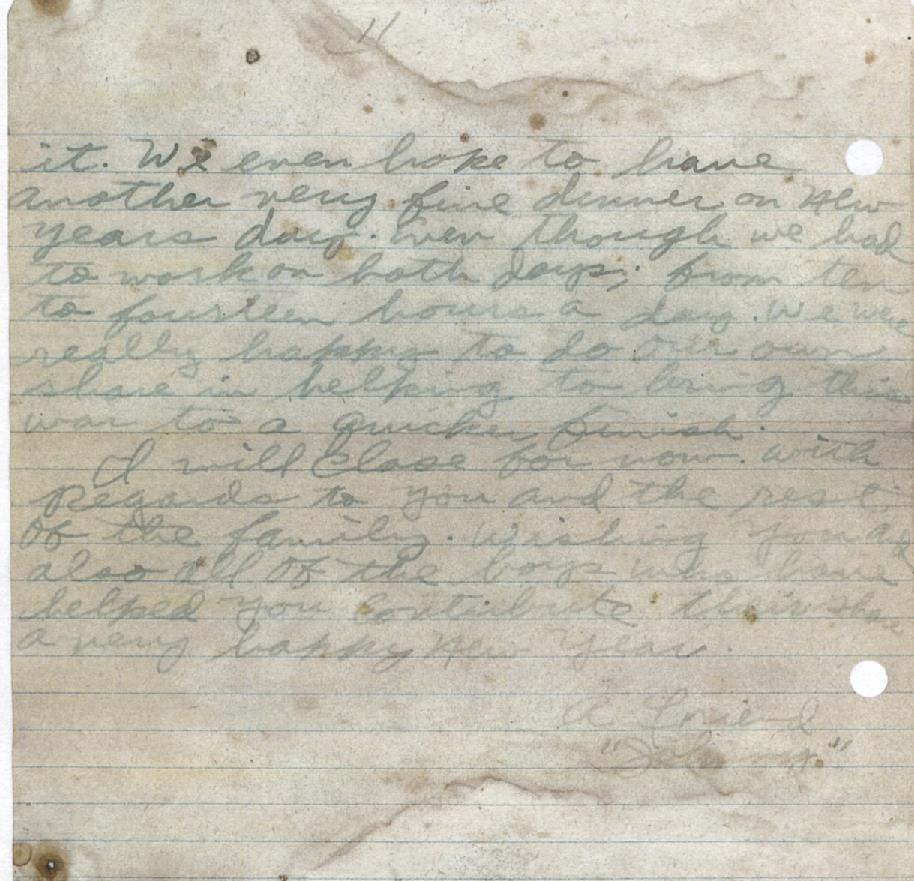 11
it. We even hope to have
another very fine dinner on New
years day. Even though we had
to work on both days; from ten
to fourteen hours a day. We were
really happy to do our own
share in helping to bring this
war to a quicker finish.
I will Close for now. With
Regards to you and the rest
of the family. Wishing you and
also all of the boys who have
helped you Contribute their share
a very happy New Year.
A Friend
"Johnny."